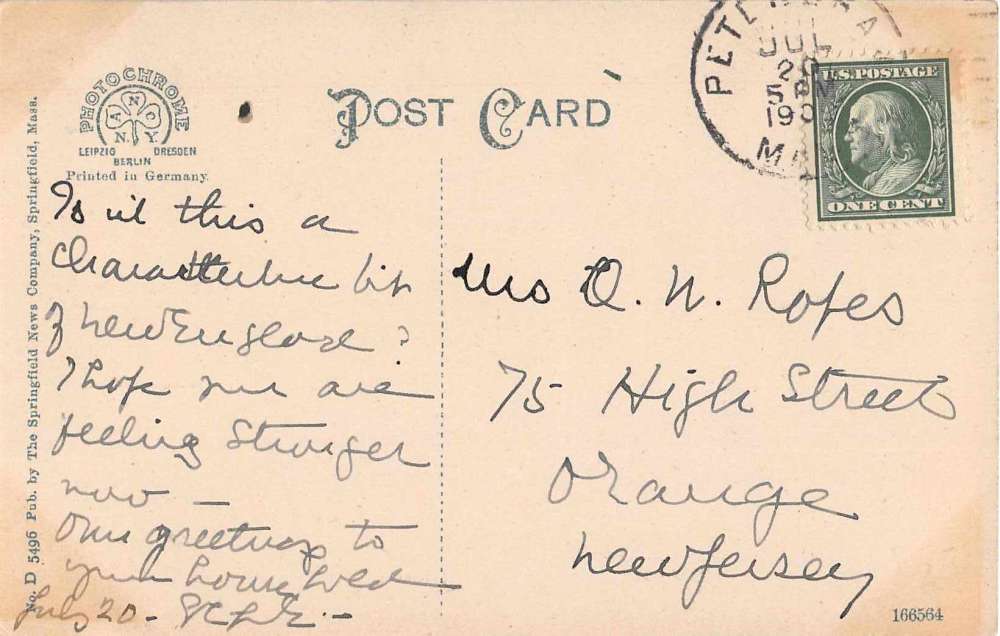 No. D 5496 Pub. by The Springfield News Company, Springfield, Mass.
PHOTOCHROME
N
A N C Y
N. Y.
LEIPZIG DRESDEN
BERLIN
Printed in Germany.
POST CARD
JUL
20
5 PM
U.S. POSTAGE
ONE CENT
Is nt this a
Characteristic bit
of New England?
I hope you are
feeling Stronger
now —
Our greetings to
your household
July 20 -
Mrs O. N. Ropes
75 High Street
Orange
New Jersey
166564